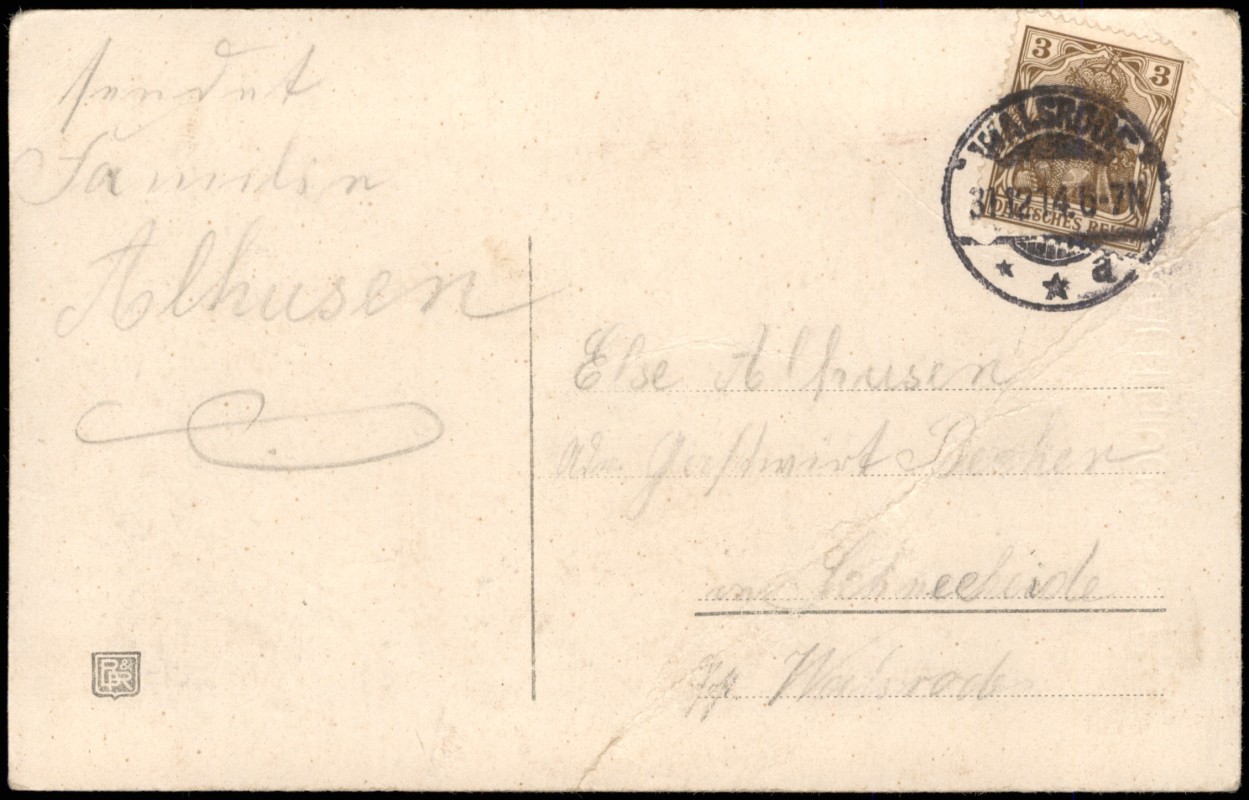 sendet
Familie
Alhusen
3 3
WALSRODE
31.12.14. 6-7N
DEUTSCHES REICH
a
Else Alhusen
Adr. Gastwirt Becker
in Schneeheide
Walsrode